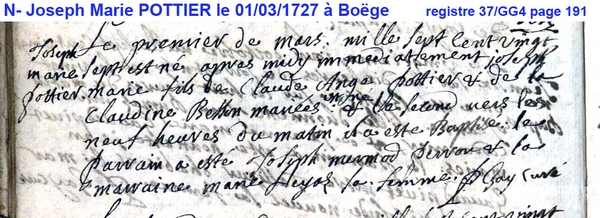 N- Joseph Marie POTTIER le 01/03/1727 à Boëge registre 37/GG4 page 191
Joseph Le premier de mars mille sept cent vingt
marie sept est né apres midy immediattement joseph
pottier marie fils de Claude Ange pottier & de la
Claudine mariés & le second vers les
neuf heures du matin il a esté Baptisé le
parrain a esté Joseph mermod & la
marraine marie sa femme curé